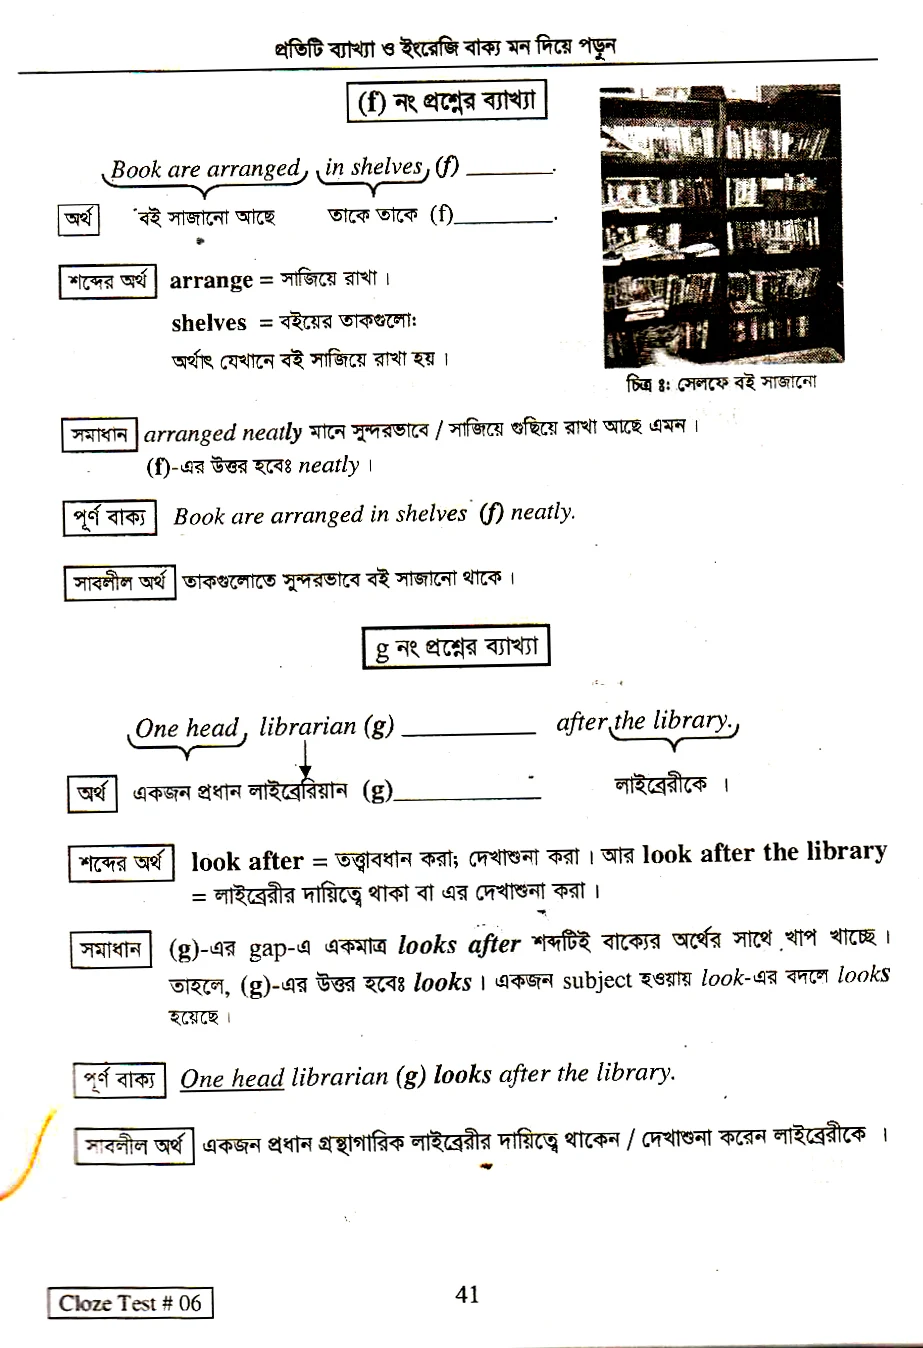 প্রতিটি ব্যাখ্যা ও ইংরেজি বাক্য মন দিয়ে পড়ুন
(f) নং প্রশ্নের ব্যাখ্যা
Book are arranged in shelves (f) ________.
অর্থ বই সাজানো আছে তাকে তাকে (f)_________.
শব্দের অর্থ arrange = সাজিয়ে রাখা ।
shelves = বইয়ের তাকগুলো:
অর্থাৎ যেখানে বই সাজিয়ে রাখা হয় ।
চিত্র ৪: সেলফে বই সাজানো
সমাধান arranged neatly মানে সুন্দরভাবে / সাজিয়ে গুছিয়ে রাখা আছে এমন ।
(f)-এর উত্তর হবেঃ neatly ।
পূর্ণ বাক্য Book are arranged in shelves (f) neatly.
সাবলীল অর্থ তাকগুলোতে সুন্দরভাবে বই সাজানো থাকে ।
g নং প্রশ্নের ব্যাখ্যা
One head librarian (g) ____________ after the library.
অর্থ একজন প্রধান লাইব্রেরিয়ান (g)_____________ লাইব্রেরীকে ।
শব্দের অর্থ look after = তত্ত্বাবধান করা; দেখাশুনা করা । আর look after the library
= লাইব্রেরীর দায়িত্বে থাকা বা এর দেখাশুনা করা ।
সমাধান (g)-এর gap-এ একমাত্র looks after শব্দটিই বাক্যের অর্থের সাথে খাপ খাচ্ছে ।
তাহলে, (g)-এর উত্তর হবেঃ looks । একজন subject হওয়ায় look-এর বদলে looks
হয়েছে ।
পূর্ণ বাক্য One head librarian (g) looks after the library.
সাবলীল অর্থ একজন প্রধান গ্রন্থাগারিক লাইব্রেরীর দায়িত্বে থাকেন / দেখাশুনা করেন লাইব্রেরীকে ।
Cloze Test # 06
41